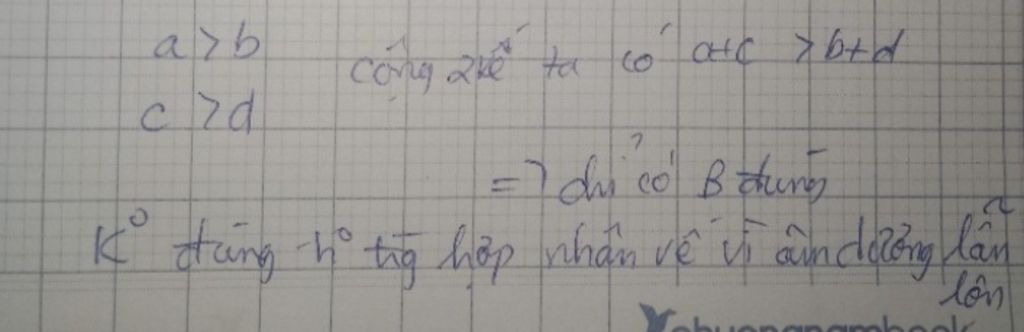 a > b
cộng 2 vế ta có a+c > b+d
c > d
=> chỉ có B đúng
K° đúng tg hợp nhân vế vì âm dương lẫn
lộn